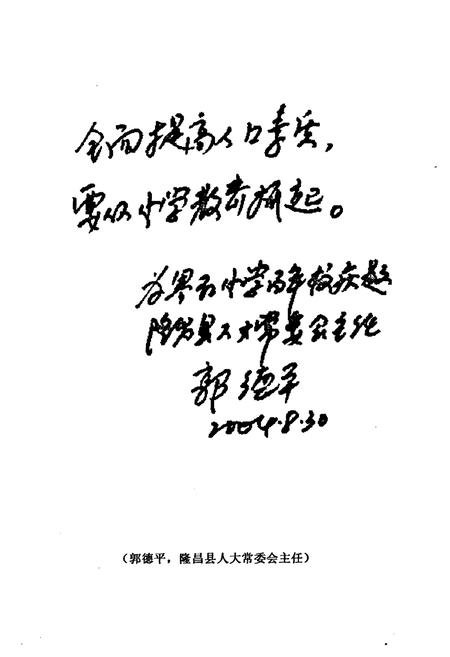 全面提高人口素质，
要从小学教育抓起。
为界石小学百年校庆题
隆昌县人大常委会主任
郭德平
2004.8.30
（郭德平，隆昌县人大常委会主任）